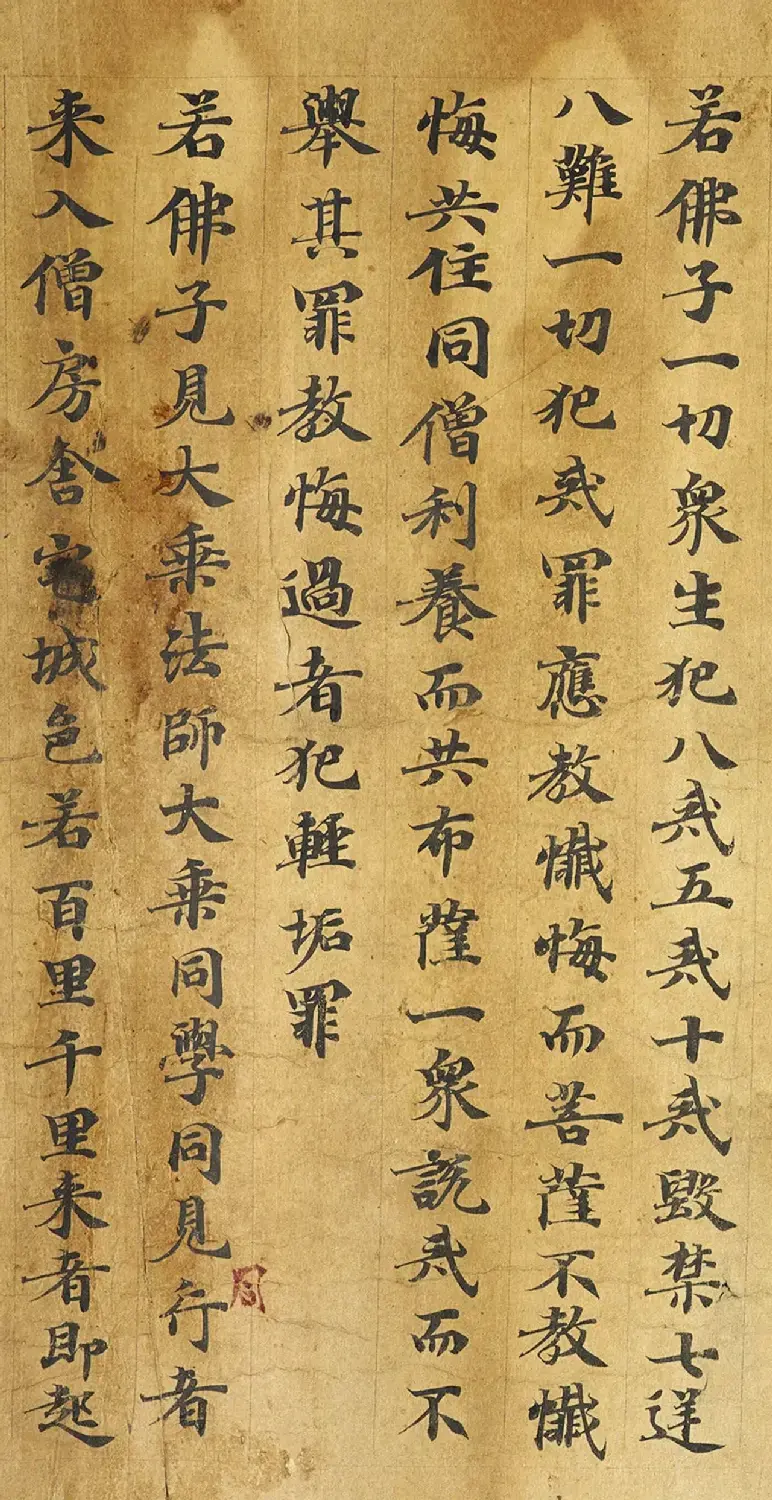 若佛子一切眾生犯八戒五戒十戒毀禁七逆
八難一切犯戒罪應教懺悔而菩薩不教懺
悔共住同僧利養而共布薩一眾說戒而不
舉其罪教悔過者犯輕垢罪
若佛子見大乘法師大乘同學同見行者
来入僧房舍宅城邑若百里千里来者即起